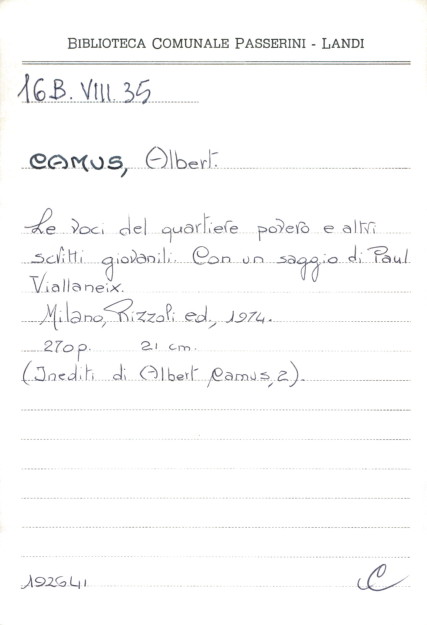 BIBLIOTECA COMUNALE PASSERINI - LANDI
16B. VIII. 35
CAMUS, Albert.
Le voci del quartiere povero e altri
scritti giovanili. Con un saggio di Paul
Viallaneix.
Milano, Rizzoli ed., 1974.
270 p. 21 cm.
(Inediti di Albert Camus, 2).
192641
C